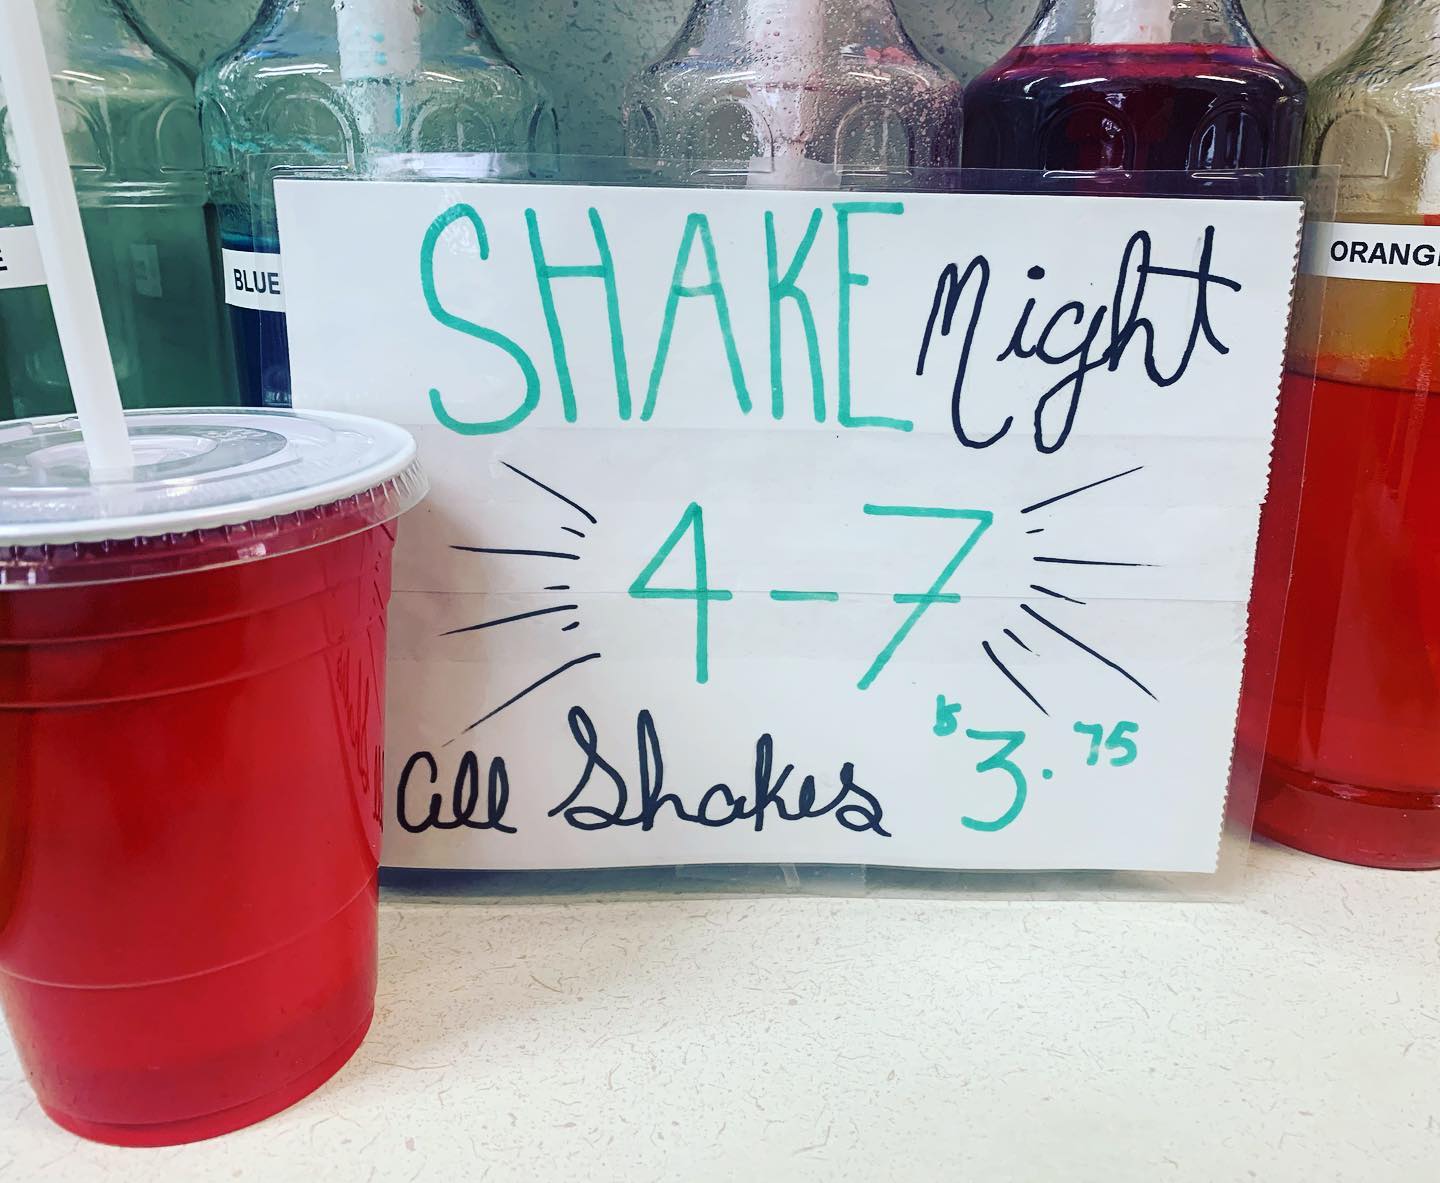 SHAKE Night
4-7
all Shakes $3.75
BLUE